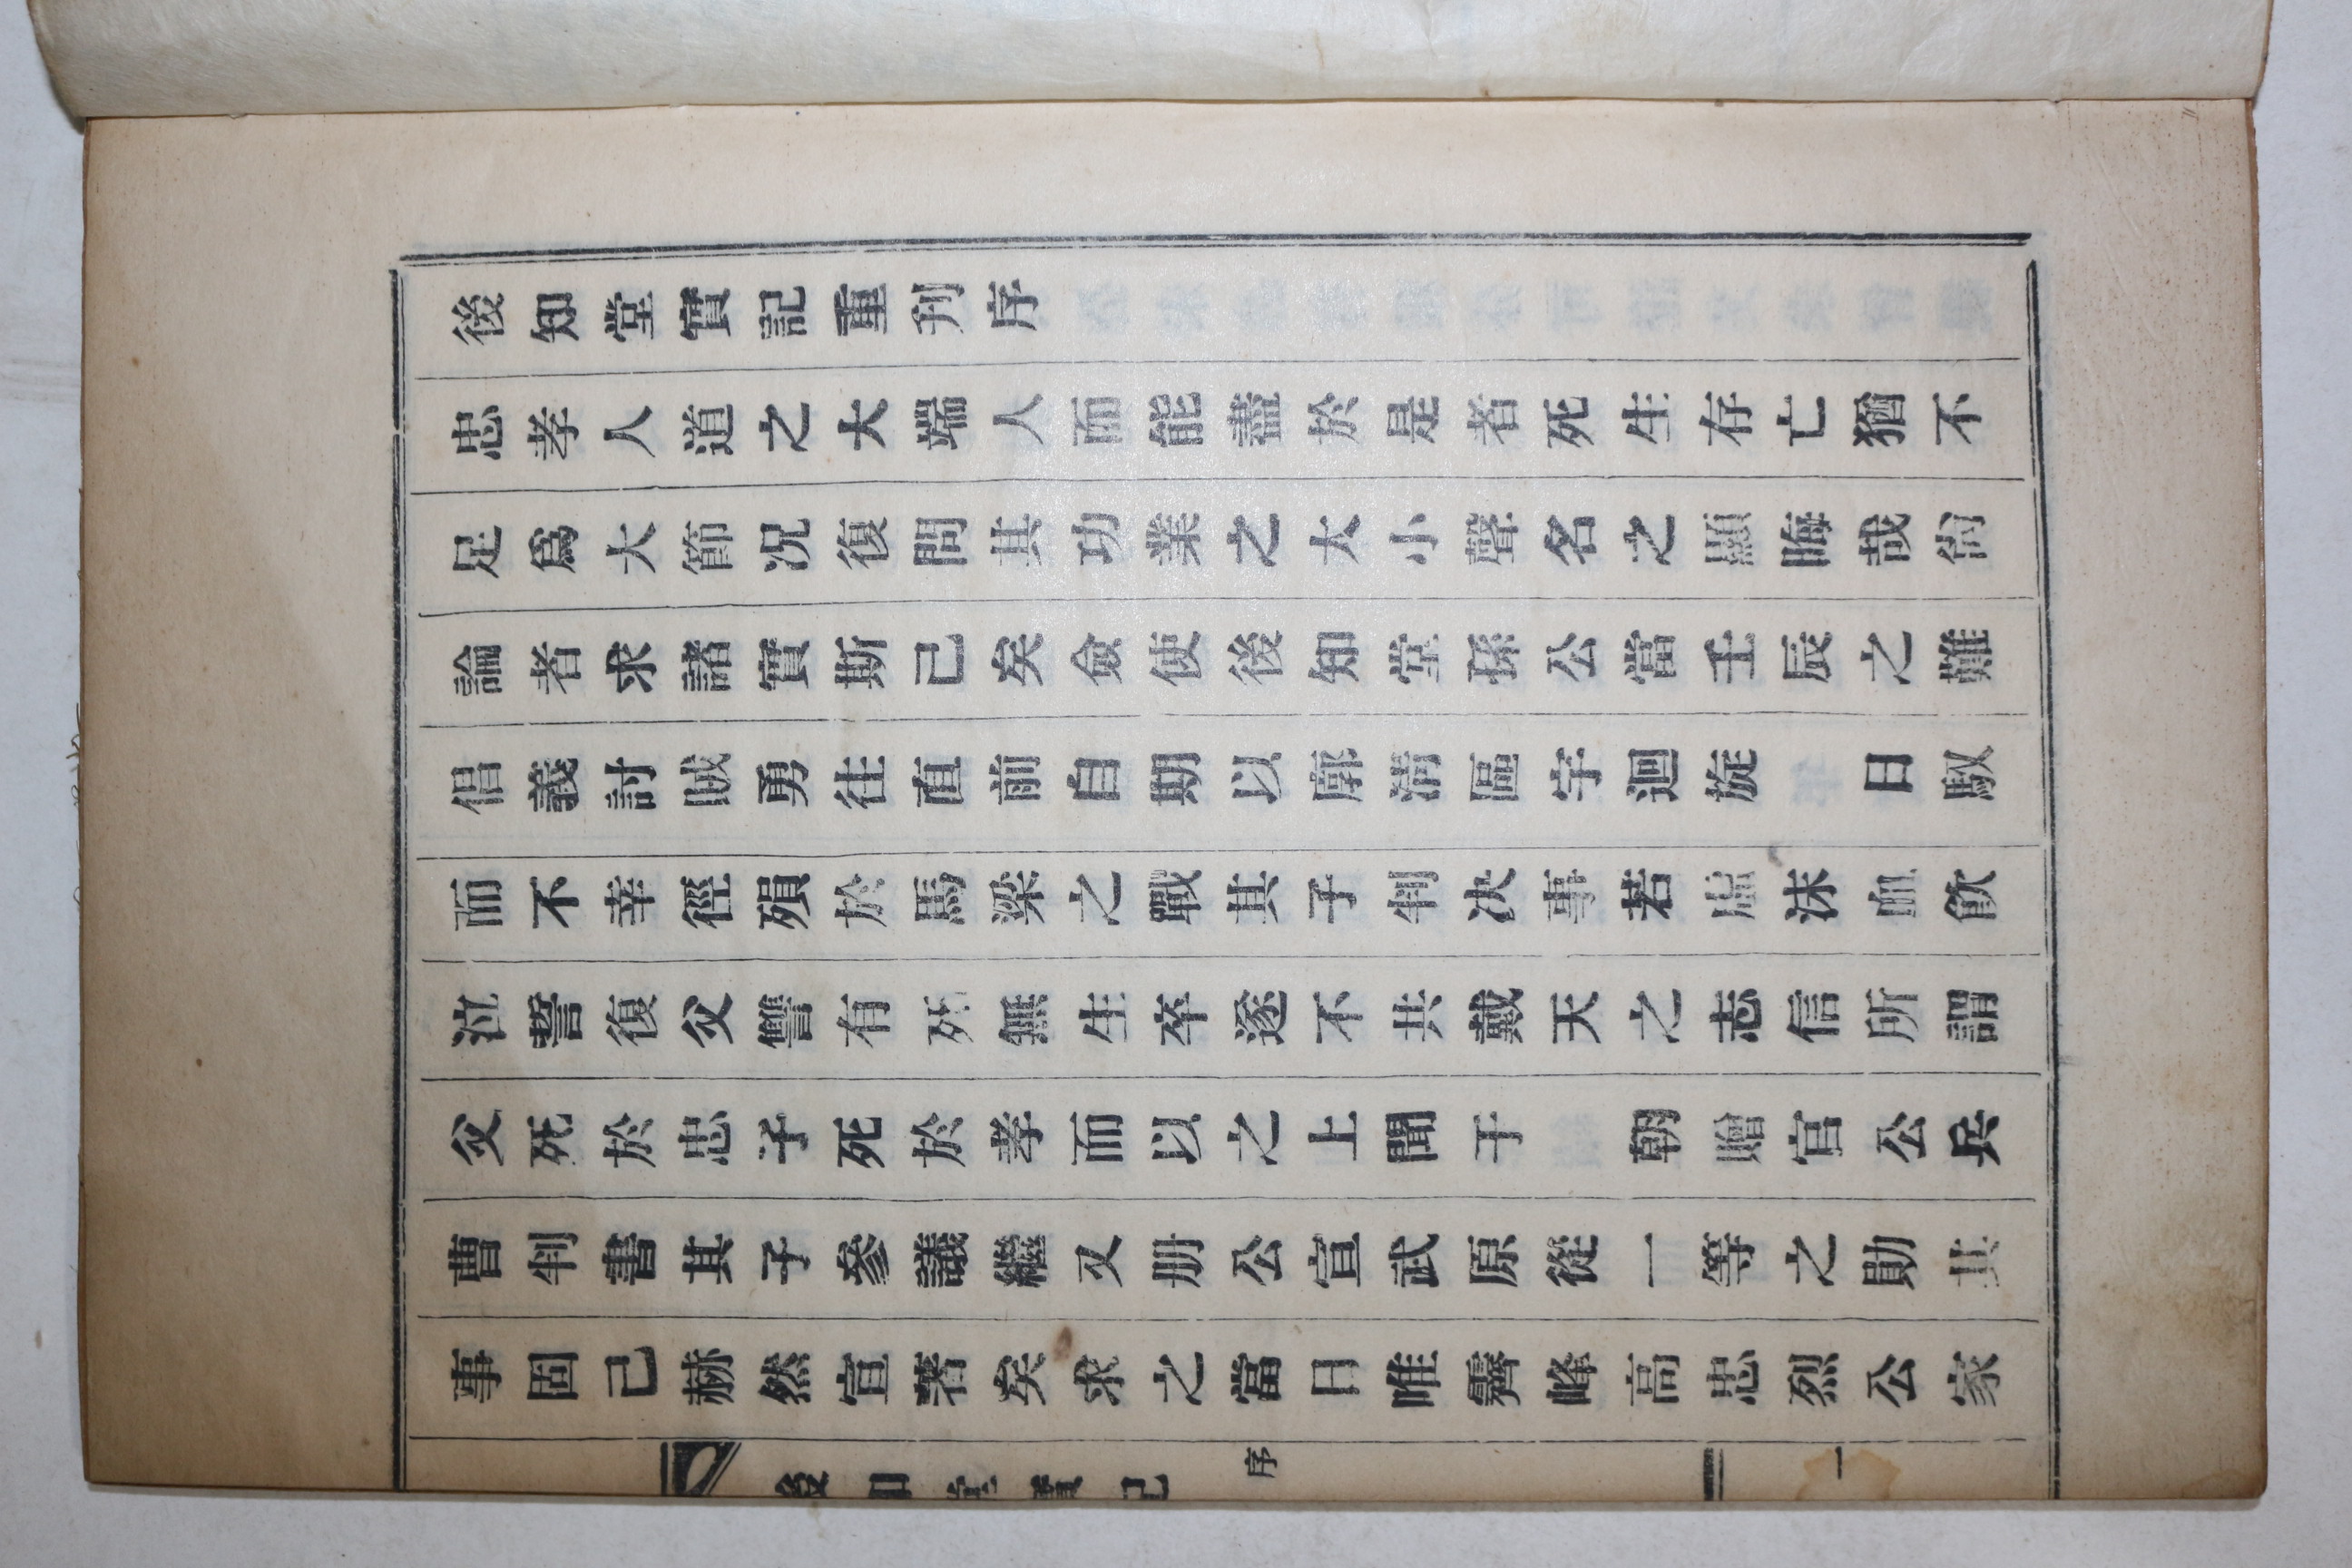 後知堂實記重刋序
忠孝人道之大端人而能盡於是者死生存亡猶不
足爲大節况復問其功業之大小聲名之顯晦哉尙
論者求諸實斯己矣僉使後知堂孫公當壬辰之難
倡義討賊勇往直前自期以廓淸區宇迴旋 日馭
而不幸徑殞於馬梁之戰其子判决事若虛沫血飮
泣誓復父讐有死無生卒遂不共戴天之志信所謂
父死於忠子死於孝而以之上聞于 朝贈官公兵
曹判書其子參議繼又册公宣武原從一等之勛其
事固己赫然宣著矣求之當日唯霽峰高忠烈公家
後知堂實記 序 一